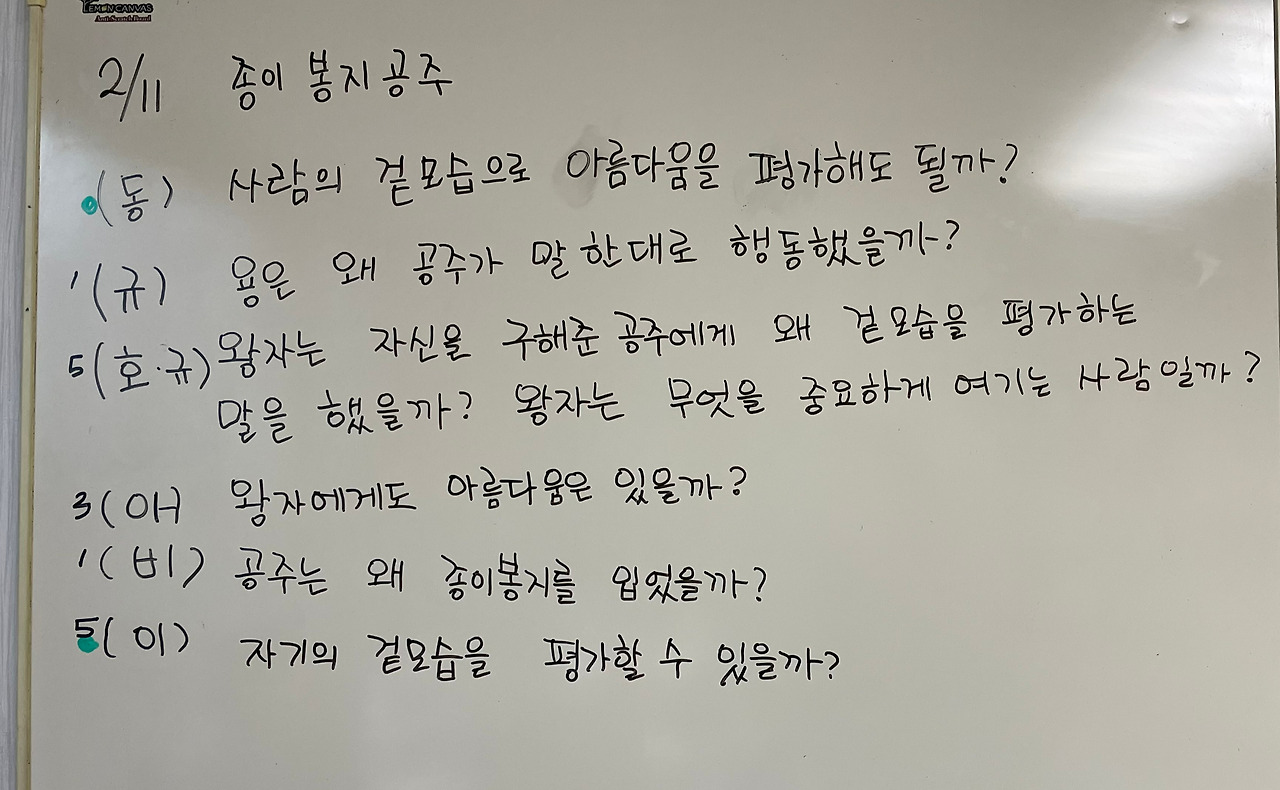 LEMON CANVAS
Anti-Scratch Board
2/11 종이 봉지 공주
(동) 사람의 겉모습으로 아름다움을 평가해도 될까?
1 (규) 용은 왜 공주가 말 한대로 행동했을까?
5 (호·규) 왕자는 자신을 구해준 공주에게 왜 겉모습을 평가하는
말을 했을까? 왕자는 무엇을 중요하게 여기는 사람일까?
3 (아) 왕자에게도 아름다움은 있을까?
1 (비) 공주는 왜 종이봉지를 입었을까?
5 (이) 자기의 겉모습을 평가할 수 있을까?